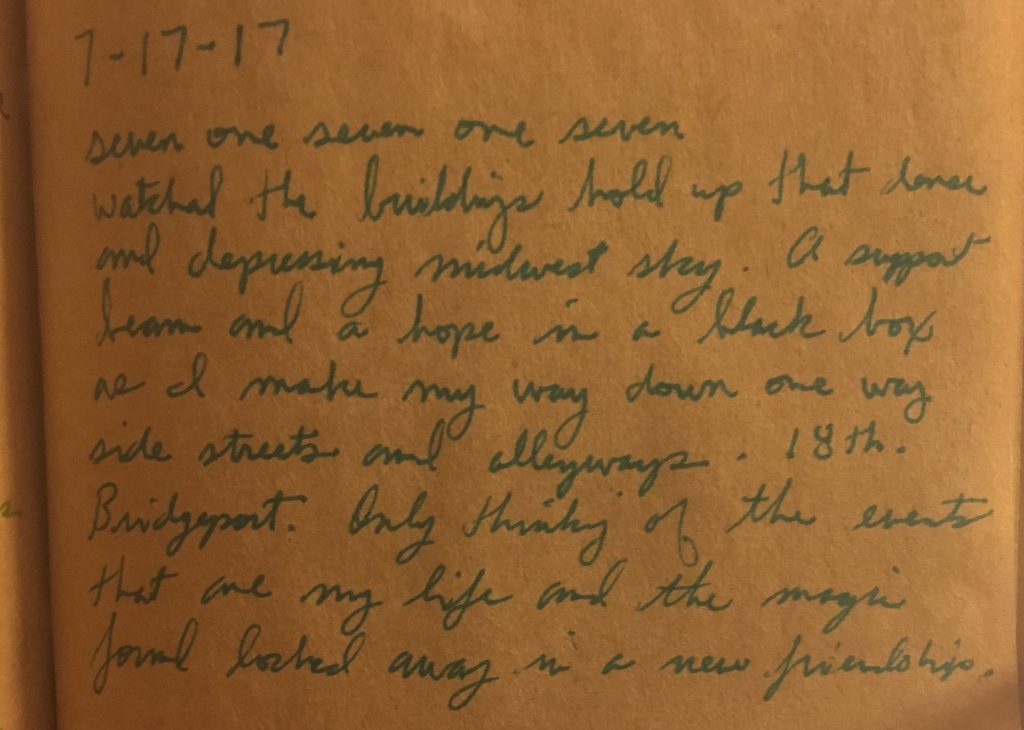 7-17-17
seven one seven one seven
watched the buildings hold up that dense
and depressing midwest sky. A support
beam and a hope in a black box
as I make my way down one way
side streets and alleyways. 18th.
Bridgeport. Only thinking of the events
that are my life and the magic
found locked away in a new friendship.